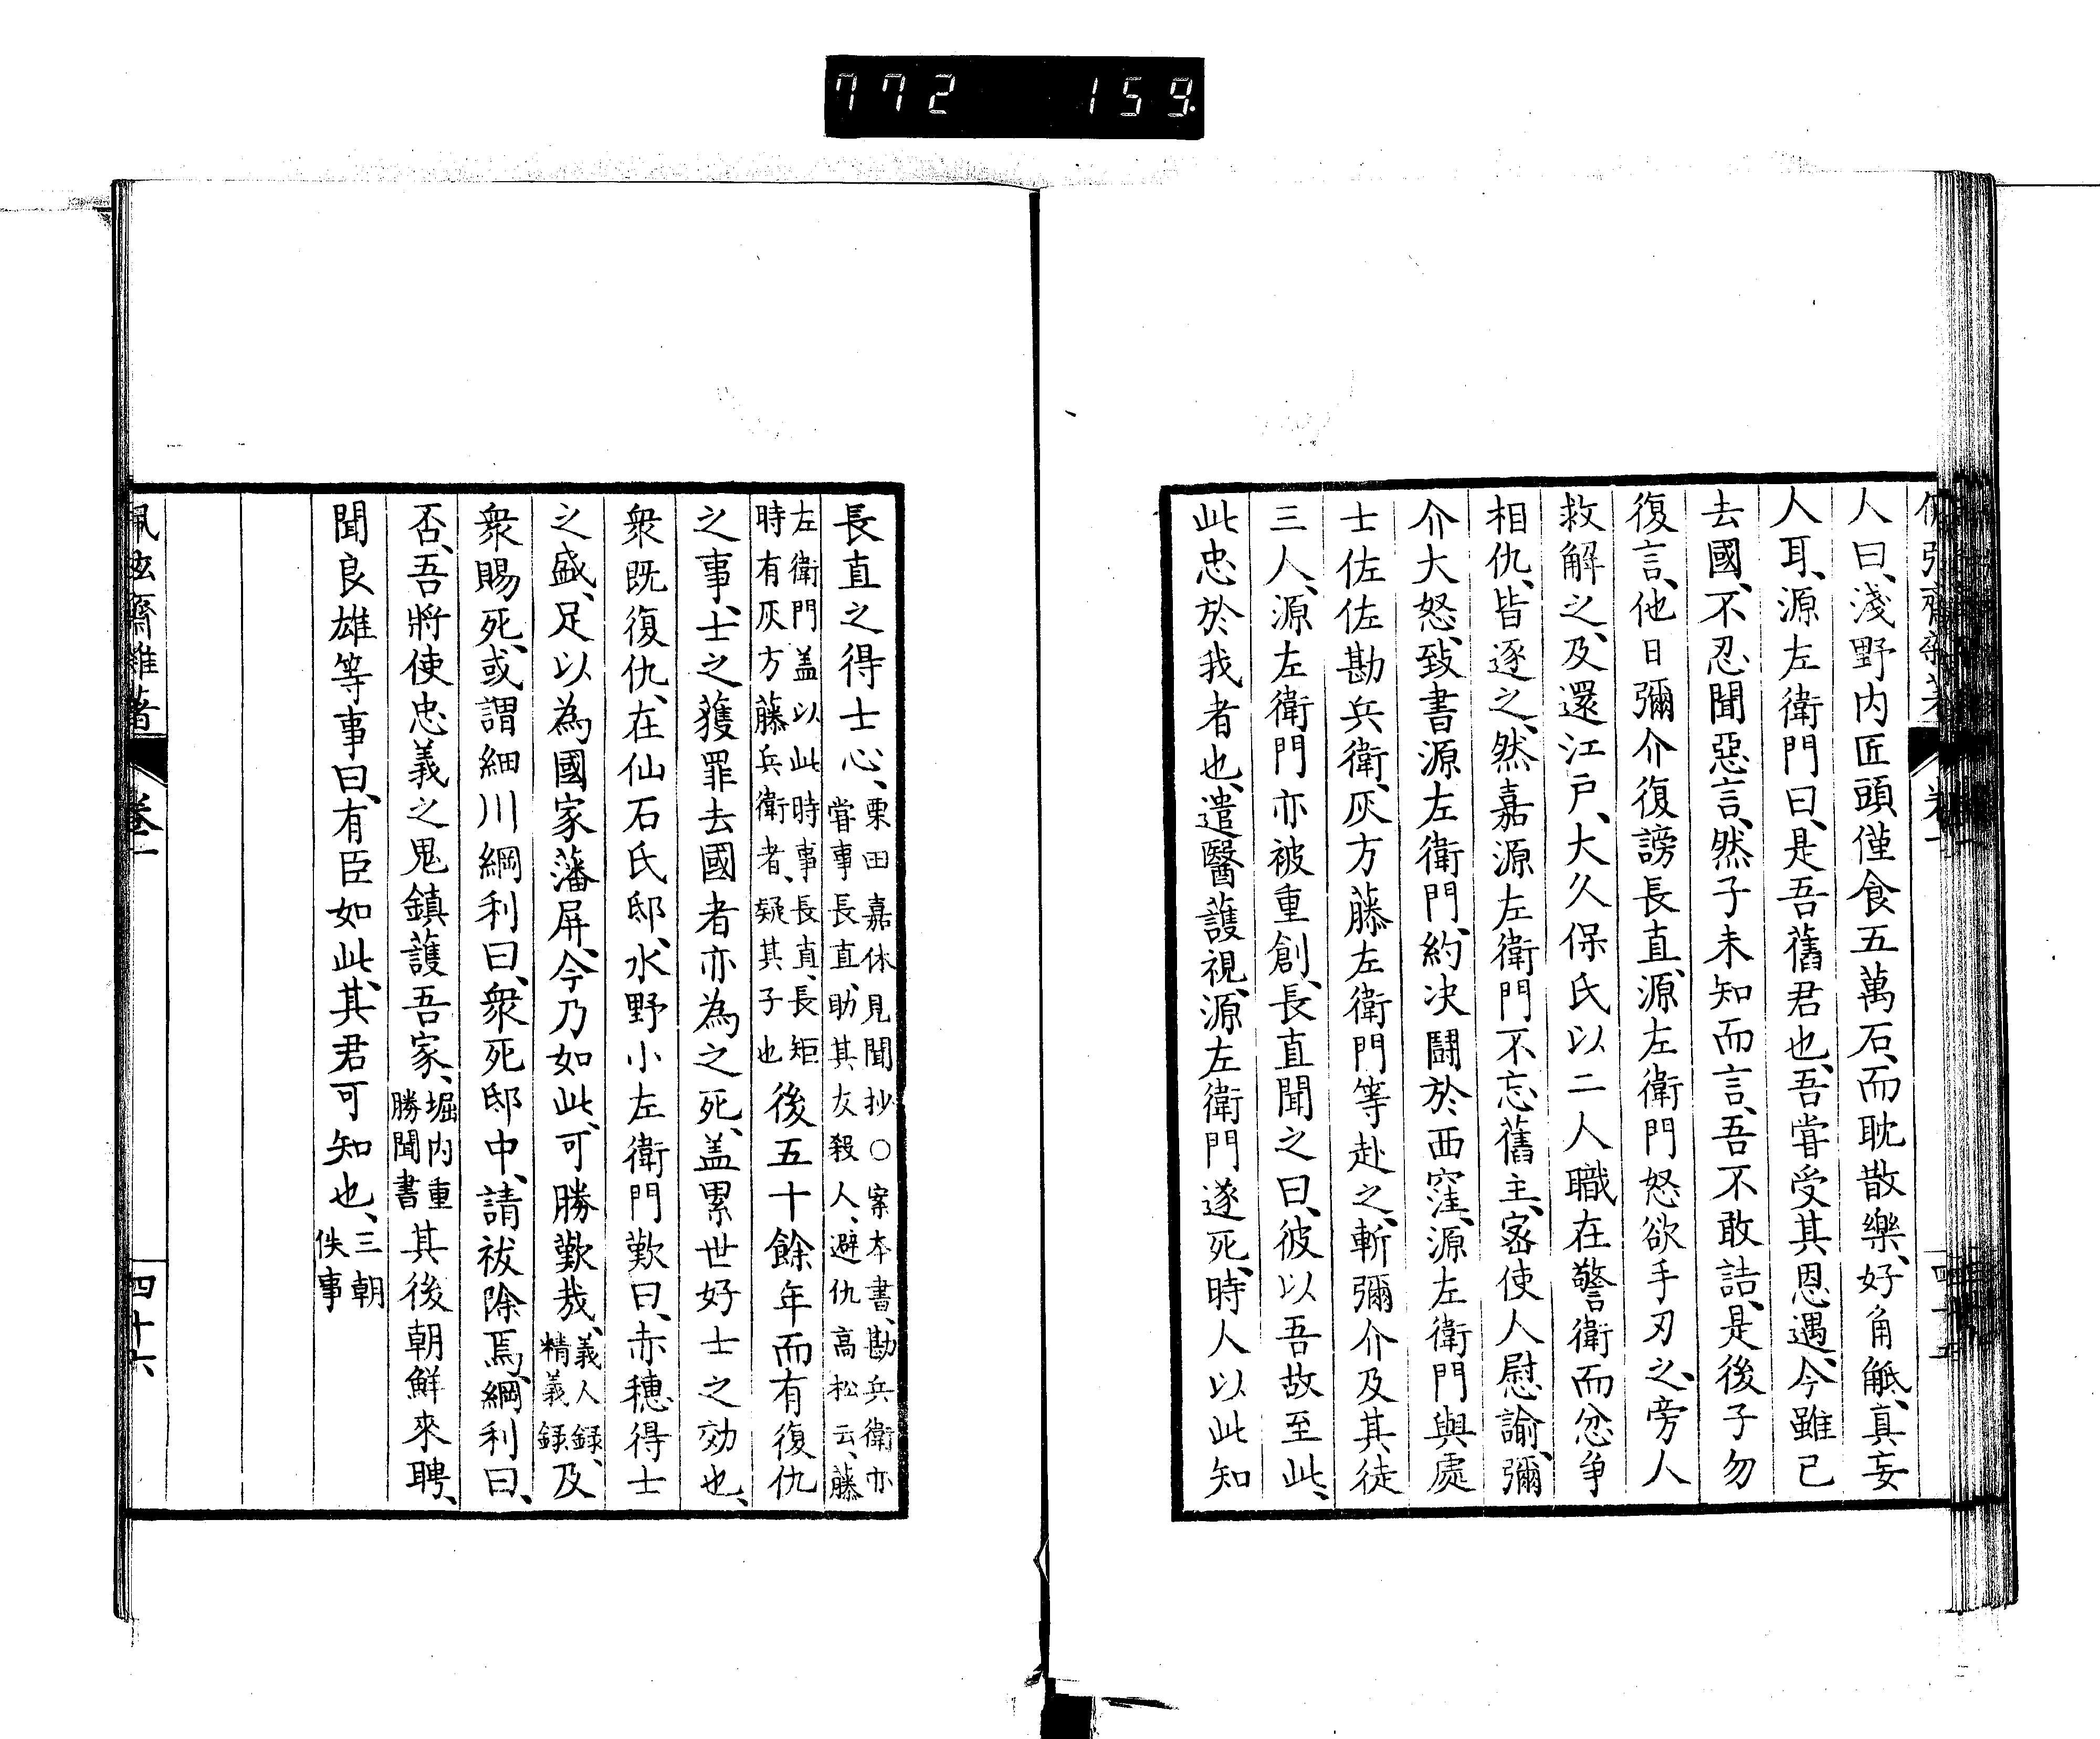 772 159
人曰、淺野内匠頭僅食五萬石、而耽散樂、好角觝、真妄
人耳、源左衛門曰、是吾舊君也、吾甞受其恩遇、今雖已
去國、不忍聞惡言、然子未知而言、吾不敢詰、是後子勿
復言、他日彌介復謗長直、源左衛門怒欲手刃之、旁人
救解之、及還江戸、大久保氏以二人職在警衛而忿争
相仇、皆逐之、然嘉源左衛門不忘舊主、密使人慰諭、彌
介大怒、致書源左衛門、約决鬪於西窪、源左衛門與處
士佐佐勘兵衛、灰方藤左衛門等赴之、斬彌介及其徒
三人、源左衛門亦被重創、長直聞之曰、彼以吾故至此、
此忠於我者也、遣醫護視、源左衛門遂死、時人以此知
長直之得士心、栗田嘉休見聞抄○案本書、勘兵衛亦
甞事長直、助其友殺人、避仇高松云、藤
左衛門盖以此時事長直、長矩
時有灰方藤兵衛者、疑其子也後五十餘年而有復仇
之事、士之獲罪去國者亦為之死、盖累世好士之効也、
衆既復仇、在仙石氏邸、水野小左衛門歎曰、赤穗得士
之盛、足以為國家藩屏、今乃如此、可勝歎哉、義人録、
精義録及
衆賜死、或謂細川綱利曰、衆死邸中、請祓除焉、綱利曰、
否、吾將使忠義之鬼鎮護吾家、堀内重
勝聞書其後朝鮮來聘、
聞良雄等事曰、有臣如此、其君可知也、三朝
佚事
齋雜著
卷一
四十六